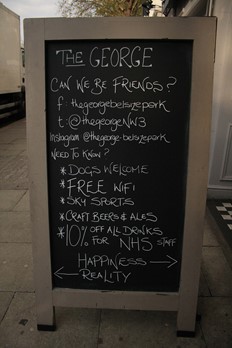 THE GEORGE
CAN WE BE FRIENDS?
f thegeorgebelsizepark
t: @thegeorgeNW3
Instagram @thegeorge-belsizepark
NEED TO KNOW?
* DOGS WELCOME
* FREE WIFI
* SKY SPORTS
* CRAFT BEERS & ALES
* 10% OFF ALL DRINKS
FOR NHS STAFF
HAPPINESS →
← REALITY